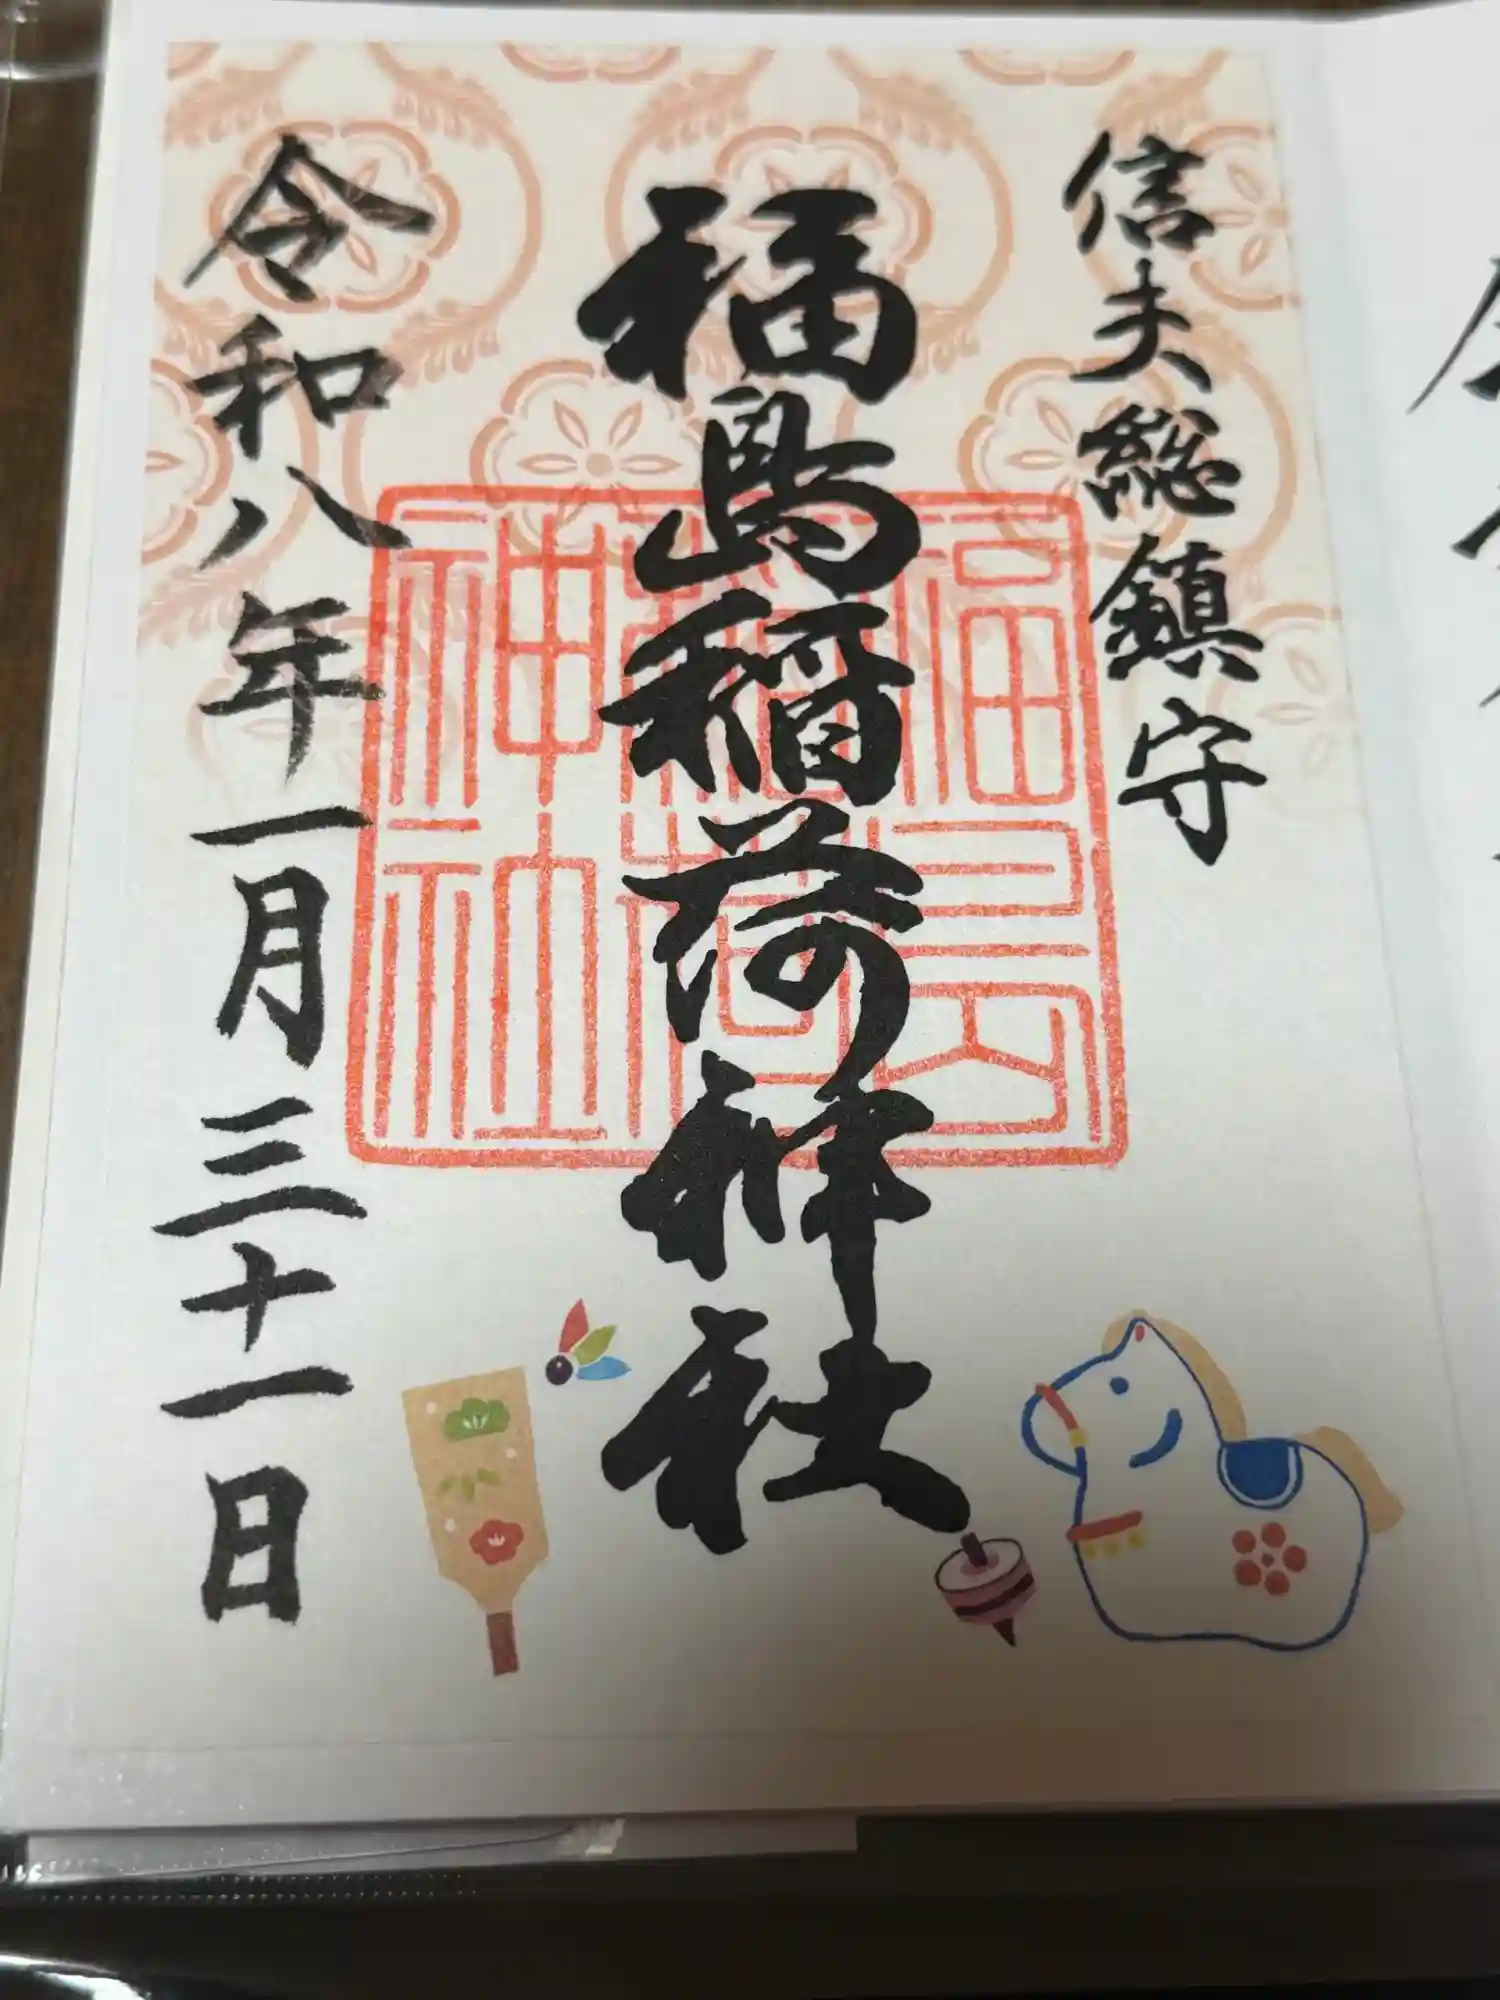 信夫総鎮守
福島稲荷神社
福島
稲荷
神社
令和八年一月三十一日